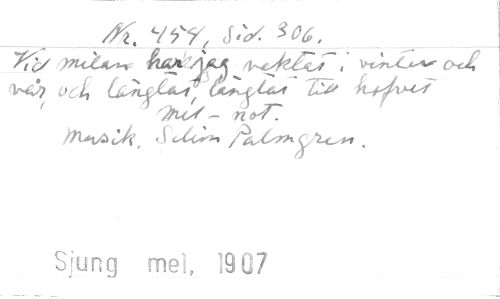 Nr. 454, Sid. 306.
Vid milan har jag vaktat i vinter och
vår, och längtat, längtat till hafvet
mel - not.
Musik. Selim Palmgren.
Sjung mel, 1907